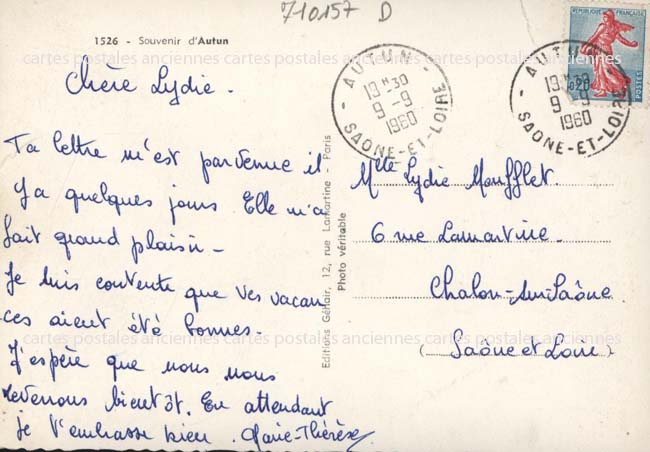 710157 D
1526 - Souvenir d'Autun -
Chère Lydie -
Ta lettre m'est parvenue il
y a quelques jours Elle m'a
fait grand plaisir -
Je suis contente que tes vacan
ces aient été bonnes.
J'espère que nous nous
reverrons bientôt. En attendant
je t'embrasse bien. Marie-Thérèse
Editions Gélfair, 12, rue Lamartine - Paris
Photo véritable
- AUTUN -
19 H 30
9 - 9
1960
SAONE-ET-LOIRE
- AUTUN -
19 H 30
9 - 9
1960
SAONE-ET-LOIRE
REPUBLIQUE FRANÇAISE
0,20
POSTES
Mlle Lydie Moufflet.
6 rue Lamartine -
Chalon-sur-Saône
(Saône et Loire)
cartes postales anciennes cartes postales anciennes cartes postales anciennes
cartes postales anciennes cartes postales anciennes cartes postales anciennes
cartes postales anciennes cartes postales anciennes cartes postales anciennes